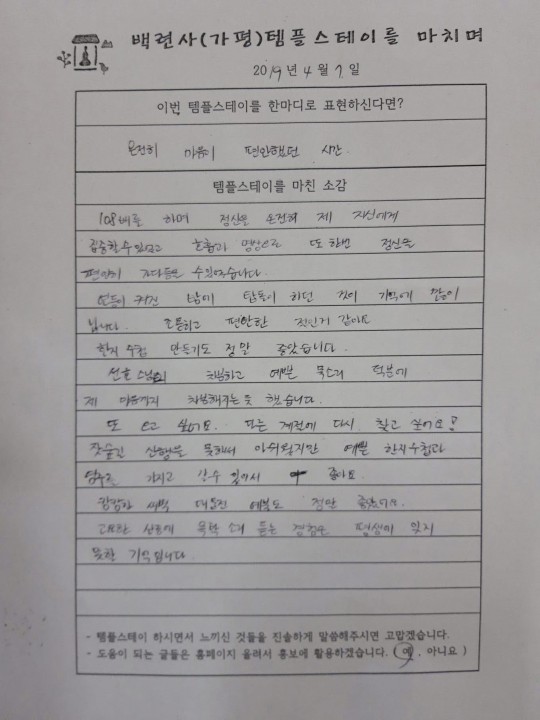 백련사(가평)템플스테이를 마치며
2019년 4월 7일
이번 템플스테이를 한마디로 표현하신다면?
온전히 마음이 편안했던 시간.
템플스테이를 마친 소감
108배를 하며 정신을 온전히 제 자신에게
집중할 수 있었고 호흡과 명상으로 또 한번 정신을
편안히 가다듬을 수 있었습니다.
연등이 켜진 밤에 탑돌이 하던 것이 기억에 많이
납니다. 고요하고 편안한 것인거 같아요
한지 수첩 만들기도 정말 좋았습니다.
선효 스님의 차분하고 예쁜 목소리 덕분에
제 마음까지 차분해지는 듯 했습니다.
또 오고 싶어요. 다른 계절에 다시 찾고 싶어요!
잣숲길 산행을 못해서 아쉬웠지만 예쁜 한지수첩과
염주를 가지고 갈 수 있어서 좋아요.
캄캄한 새벽 대웅전 예불도 정말 좋았어요.
고요한 산속에 목탁 소리 듣는 경험은 평생에 잊지
못할 기억입니다.
- 템플스테이 하시면서 느끼신 것들을 진솔하게 말씀해주시면 고맙겠습니다.
- 도움이 되는 글들은 홈페이지 올려서 홍보에 활용하겠습니다. (예, 아니요)